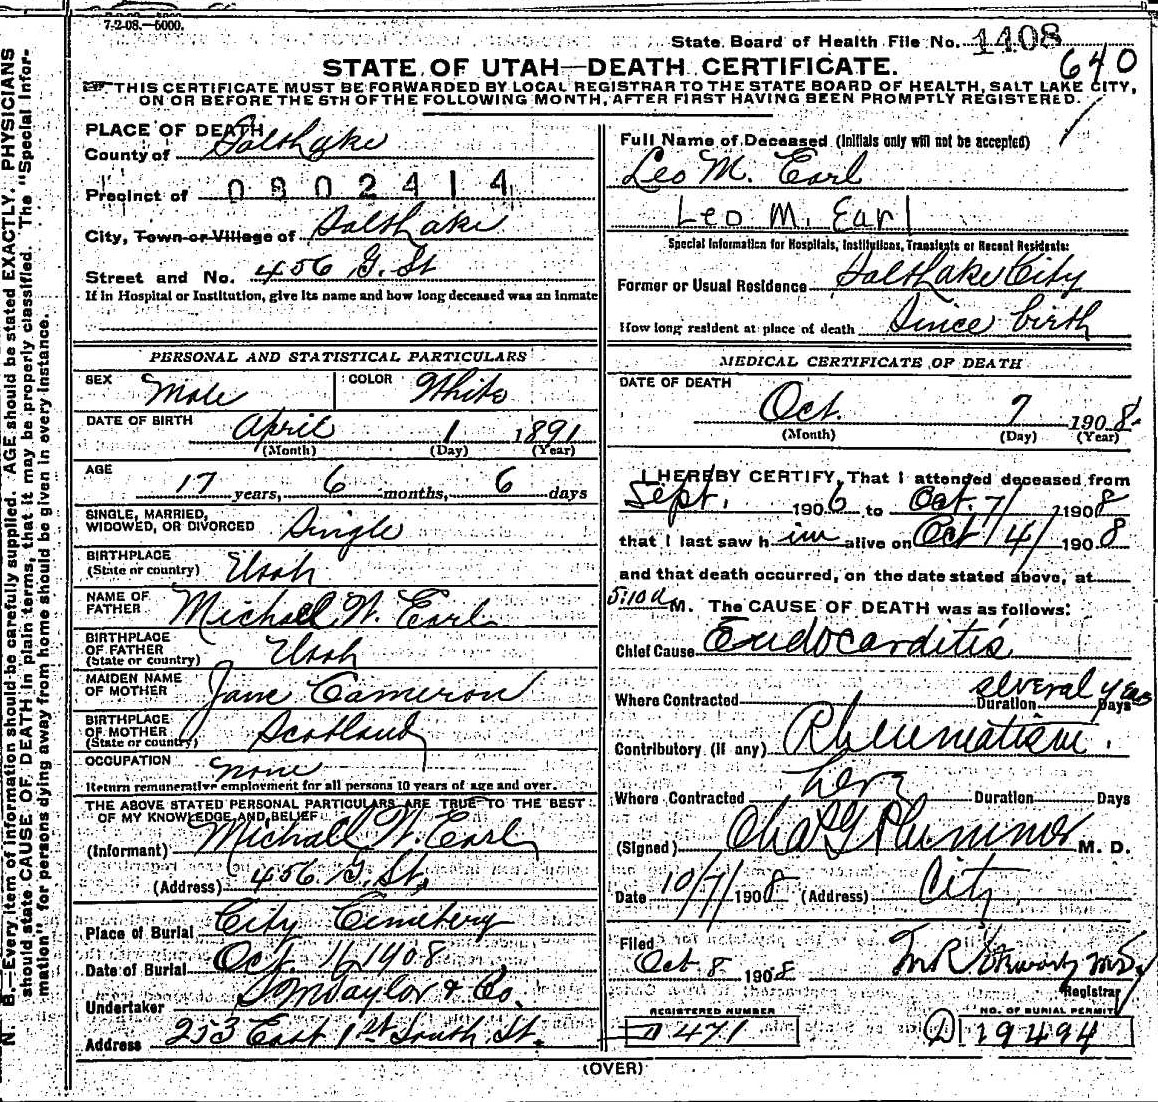 7-2-08.—5000.
State Board of Health File No. 1408
640
STATE OF UTAH—DEATH CERTIFICATE.
THIS CERTIFICATE MUST BE FORWARDED BY LOCAL REGISTRAR TO THE STATE BOARD OF HEALTH, SALT LAKE CITY,
ON OR BEFORE THE 5TH OF THE FOLLOWING MONTH, AFTER FIRST HAVING BEEN PROMPTLY REGISTERED.
N. B.—Every item of information should be carefully supplied. AGE should be stated EXACTLY. PHYSICIANS
should state CAUSE OF DEATH in plain terms, that it may be properly classified. The "Special Infor-
mation" for persons dying away from home should be given in every instance.
PLACE OF DEATH
County of Salt Lake
Precinct of 0902414
City, Town or Village of Salt Lake
Street and No. 456 G. St
If in Hospital or Institution, give its name and how long deceased was an inmate
PERSONAL AND STATISTICAL PARTICULARS
SEX Male COLOR White
DATE OF BIRTH April 1 1891
(Month) (Day) (Year)
AGE
17 years, 6 months, 6 days
SINGLE, MARRIED,
WIDOWED, OR DIVORCED Single
BIRTHPLACE
(State or country) Utah
NAME OF
FATHER Michael W. Earl
BIRTHPLACE
OF FATHER
(State or country) Utah
MAIDEN NAME
OF MOTHER Jane Cameron
BIRTHPLACE
OF MOTHER
(State or country) Scotland
OCCUPATION none
Return remunerative employment for all persons 10 years of age and over.
THE ABOVE STATED PERSONAL PARTICULARS ARE TRUE TO THE BEST
OF MY KNOWLEDGE AND BELIEF
(Informant) Michall W. Earl
(Address) 456 G. St,
Place of Burial City Cemetery
Date of Burial Oct. 11 1908
Undertaker Taylor & Co.
Address 253 East 1st South St.
Full Name of Deceased (Initials only will not be accepted)
Leo M. Earl
Leo M. Earl
Special Information for Hospitals, Institutions, Transients or Recent Residents:
Former or Usual Residence Salt Lake City
How long resident at place of death Since birth
MEDICAL CERTIFICATE OF DEATH
DATE OF DEATH
Oct. 7 1908
(Month) (Day) (Year)
I HEREBY CERTIFY, That I attended deceased from
Sept. 1906 to Oct. 7/ 1908
that I last saw him alive on Oct 4/ 1908
and that death occurred, on the date stated above, at
5:10 a M. The CAUSE OF DEATH was as follows:
Chief Cause Endocarditis
Where Contracted Duration several years Days
Contributory (if any) Rheumatism.
Where Contracted here Duration Days
(Signed) Chas G Plummer M. D.
Date 10/7/ 1908 (Address) City
Filed
Oct 8 1908
Registrar
REGISTERED NUMBER
D 471
NO. OF BURIAL PERMIT
D 19494
(OVER)